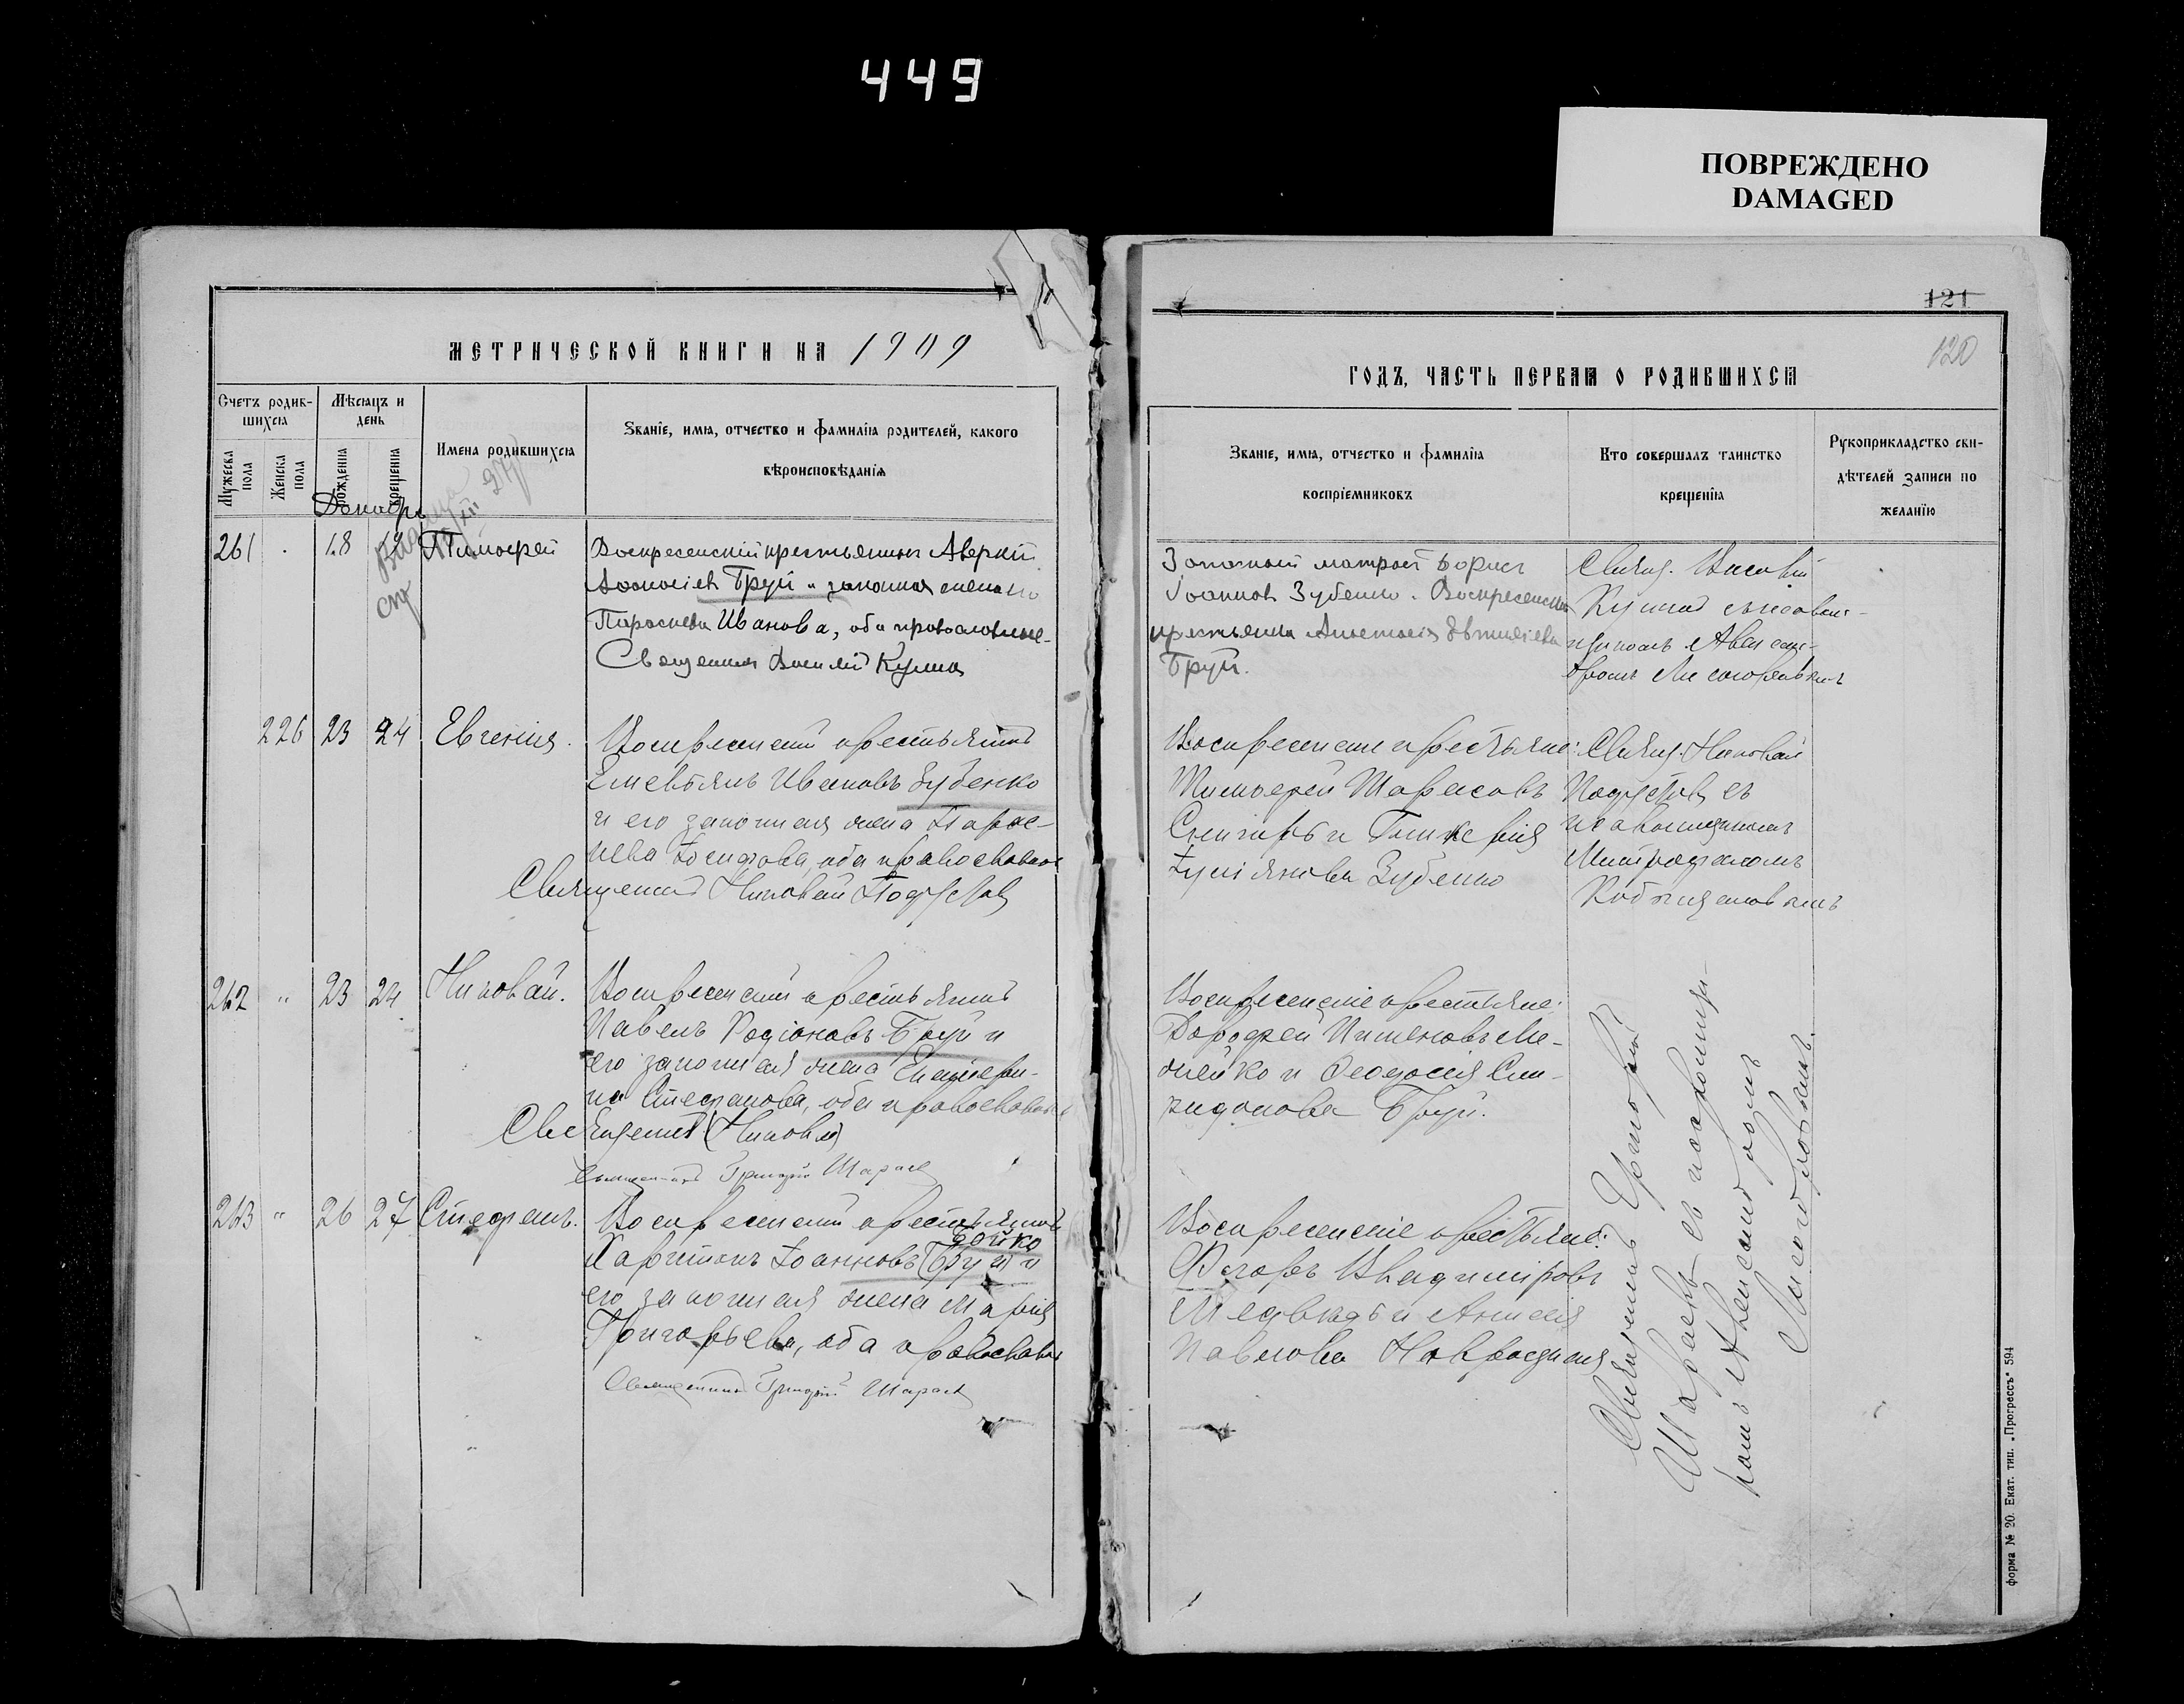 449
ПОВРЕЖДЕНО
DAMAGED
МЕТРИЧЕСКОЙ КНИГИ НА 1909
Счетъ родив-
шихся
Мѣсяцъ и
день
Имена родившихся
Званіе, имя, отчество и фамилія родителей, какого
вѣроисповѣданія
Мужеска
пола
Женска
пола
рожденія
крещенія
Декабрь
261
18
19
Тимофей
Воскресенскій крестьянинъ Аверкій
Груй и законная жена его
Параскева Иванова, оба православные
Священникъ Василій
226 23 24 Евгенія.
Воскресенскій крестьянинъ
Емельянъ Ивановъ Зубенко
и его законная жена Парас-
кева Іосифова, оба православные
Священникъ Николай
262 " 23 24 Николай.
Воскресенскій крестьянинъ
Павелъ Родіоновъ Груй и
его законная жена Екатери-
на Стефанова, оба православные
Священникъ (Николай)
Священникъ Григорій
263 " 26 27 Стефанъ.
Воскресенскій крестьянинъ
Бойко
Харитонъ Іоанновъ (Груй) и
его законная жена Марія
Григорьева, оба православные
Священникъ Григорій
121
120
ГОДЪ, ЧАСТЬ ПЕРВАЯ О РОДИВШИХСЯ
Званіе, имя, отчество и фамилія
воспріемниковъ
Кто совершалъ таинство
крещенія
Рукоприкладство сви-
дѣтелей записи по
желанію
Запасный матросъ Борисъ
Іоанновъ Зубенко. Воскресенская
крестьянка Анастасія
Груй.
Свящ. Василій
Воскресенскіе крестьяне:
Тимофей Тарасовъ
Снигирь и Гликерія
Зубенко
Свящ. Николай
съ
псаломщикомъ
Митрофаномъ
Воскресенскіе крестьяне:
Дорофей Пименовъ Ме-
лейко и Феодосія Спи-
ридонова Груй.
Воскресенскіе крестьяне:
Федоръ Владиміровъ
Медвѣдь и Анисія
Павлова
Священникъ Григорій
съ псаломщи-
комъ Александромъ
форма № 20. Екат. тип. „Прогрессъ" 594